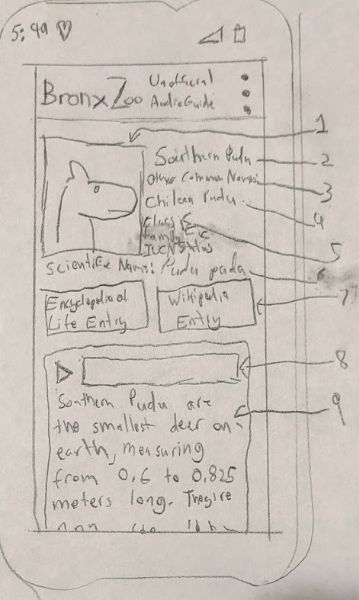 5:49
BronxZoo Unofficial
AudioGuide
1
Southern Pudu 2
Other Common Names: 3
Chilean Pudu. 4
Class
Family
5
Scientific Name: Pudu puda 6
Encyclopedia of
Life Entry
Wikipedia
Entry
7
8
Southern Pudu are
the smallest deer on
earth, measuring
from 0.6 to 0.825
meters long. They're
9